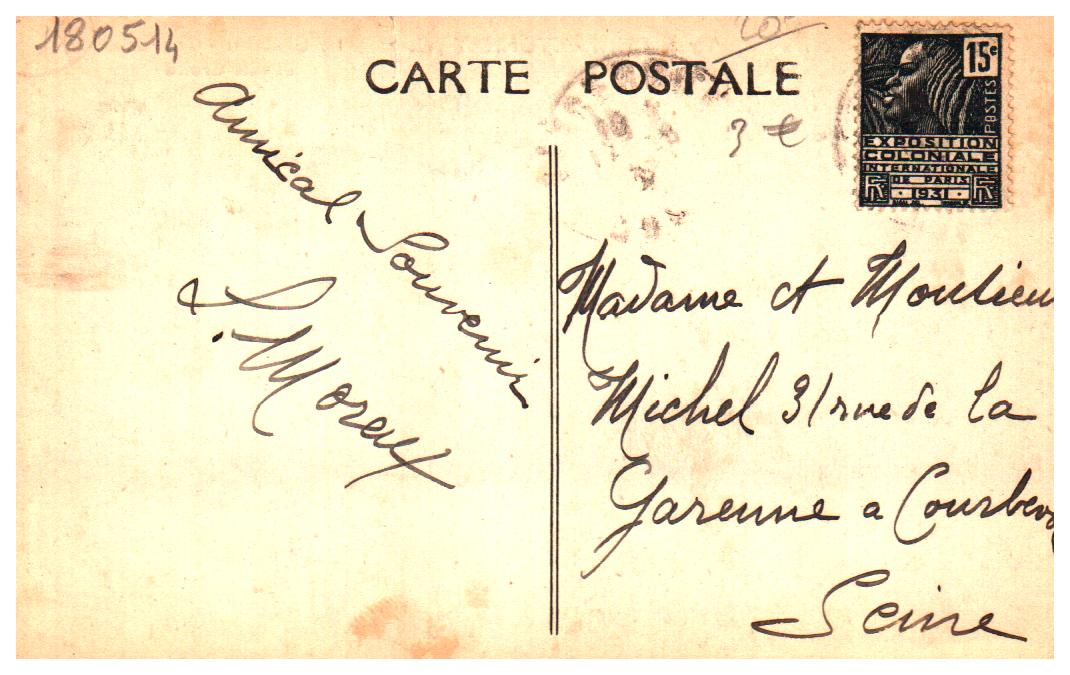 180514
CARTE POSTALE
3 €
15c
POSTES
EXPOSITION
COLONIALE
INTERNATIONALE
DE PARIS
1931
RF RF
Amical Souvenir
Madame et Monsieur
Michel 31 rue de la
Garenne a Courbevo
Seine